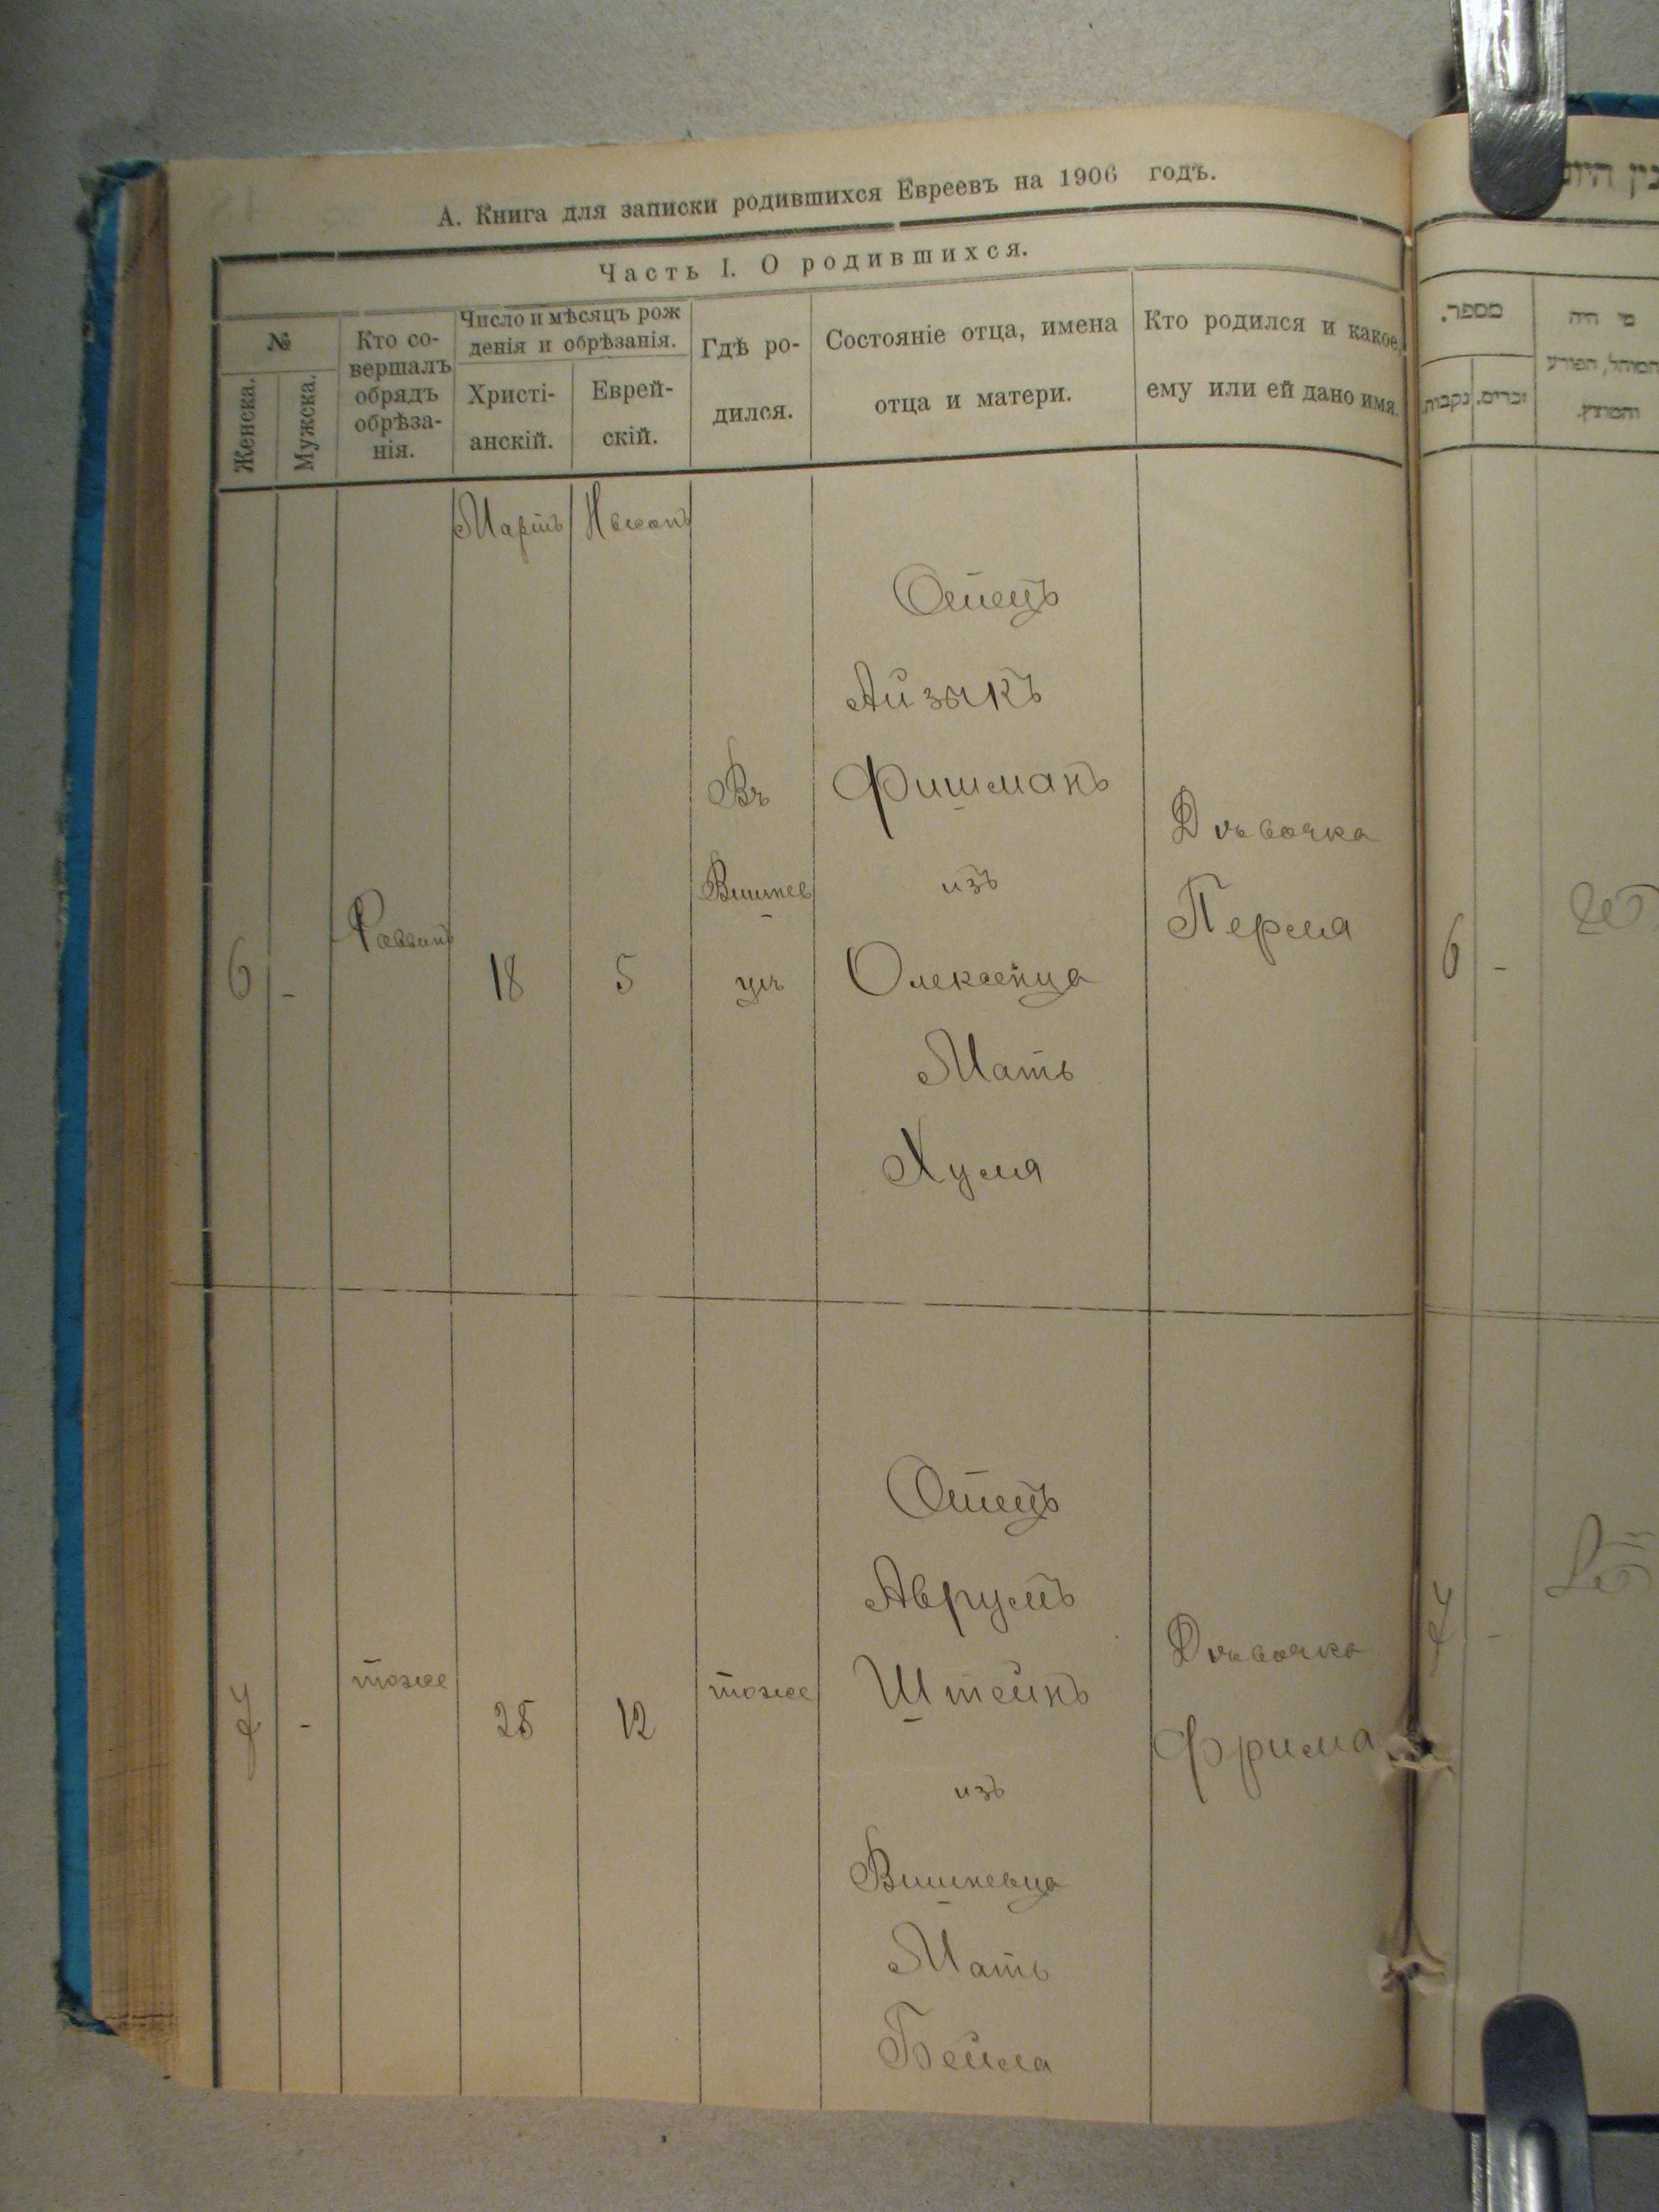 А. Книга для записки родившихся Евреевъ на 1906 годъ.
Часть I. О родившихся.
№
Женска.
Мужска.
Кто со-
вершалъ
обрядъ
обрѣза-
нія.
Число и мѣсяцъ рож
денія и обрѣзанія.
Христі-
анскій.
Еврей-
скій.
Гдѣ ро-
дился.
Состояніе отца, имена
отца и матери.
Кто родился и какое,
ему или ей дано имя.
Мартъ
Нисонъ
6
-
Раввинъ
18
5
Въ
Вишнев
цѣ
Отецъ
Айзыкъ
Фишманъ
изъ
Олексенца
Мать
Хумя
Дѣвочка
Перля
7
-
тоже
25
12
тоже
Отецъ
Аврумъ
Штейнъ
изъ
Вишневца
Мать
Бейла
Дѣвочка
Фрима
מספר.
נקבות.
זכרים.
מי היה
המוהל, הפורע
והמוצץ.
6
-
7
-